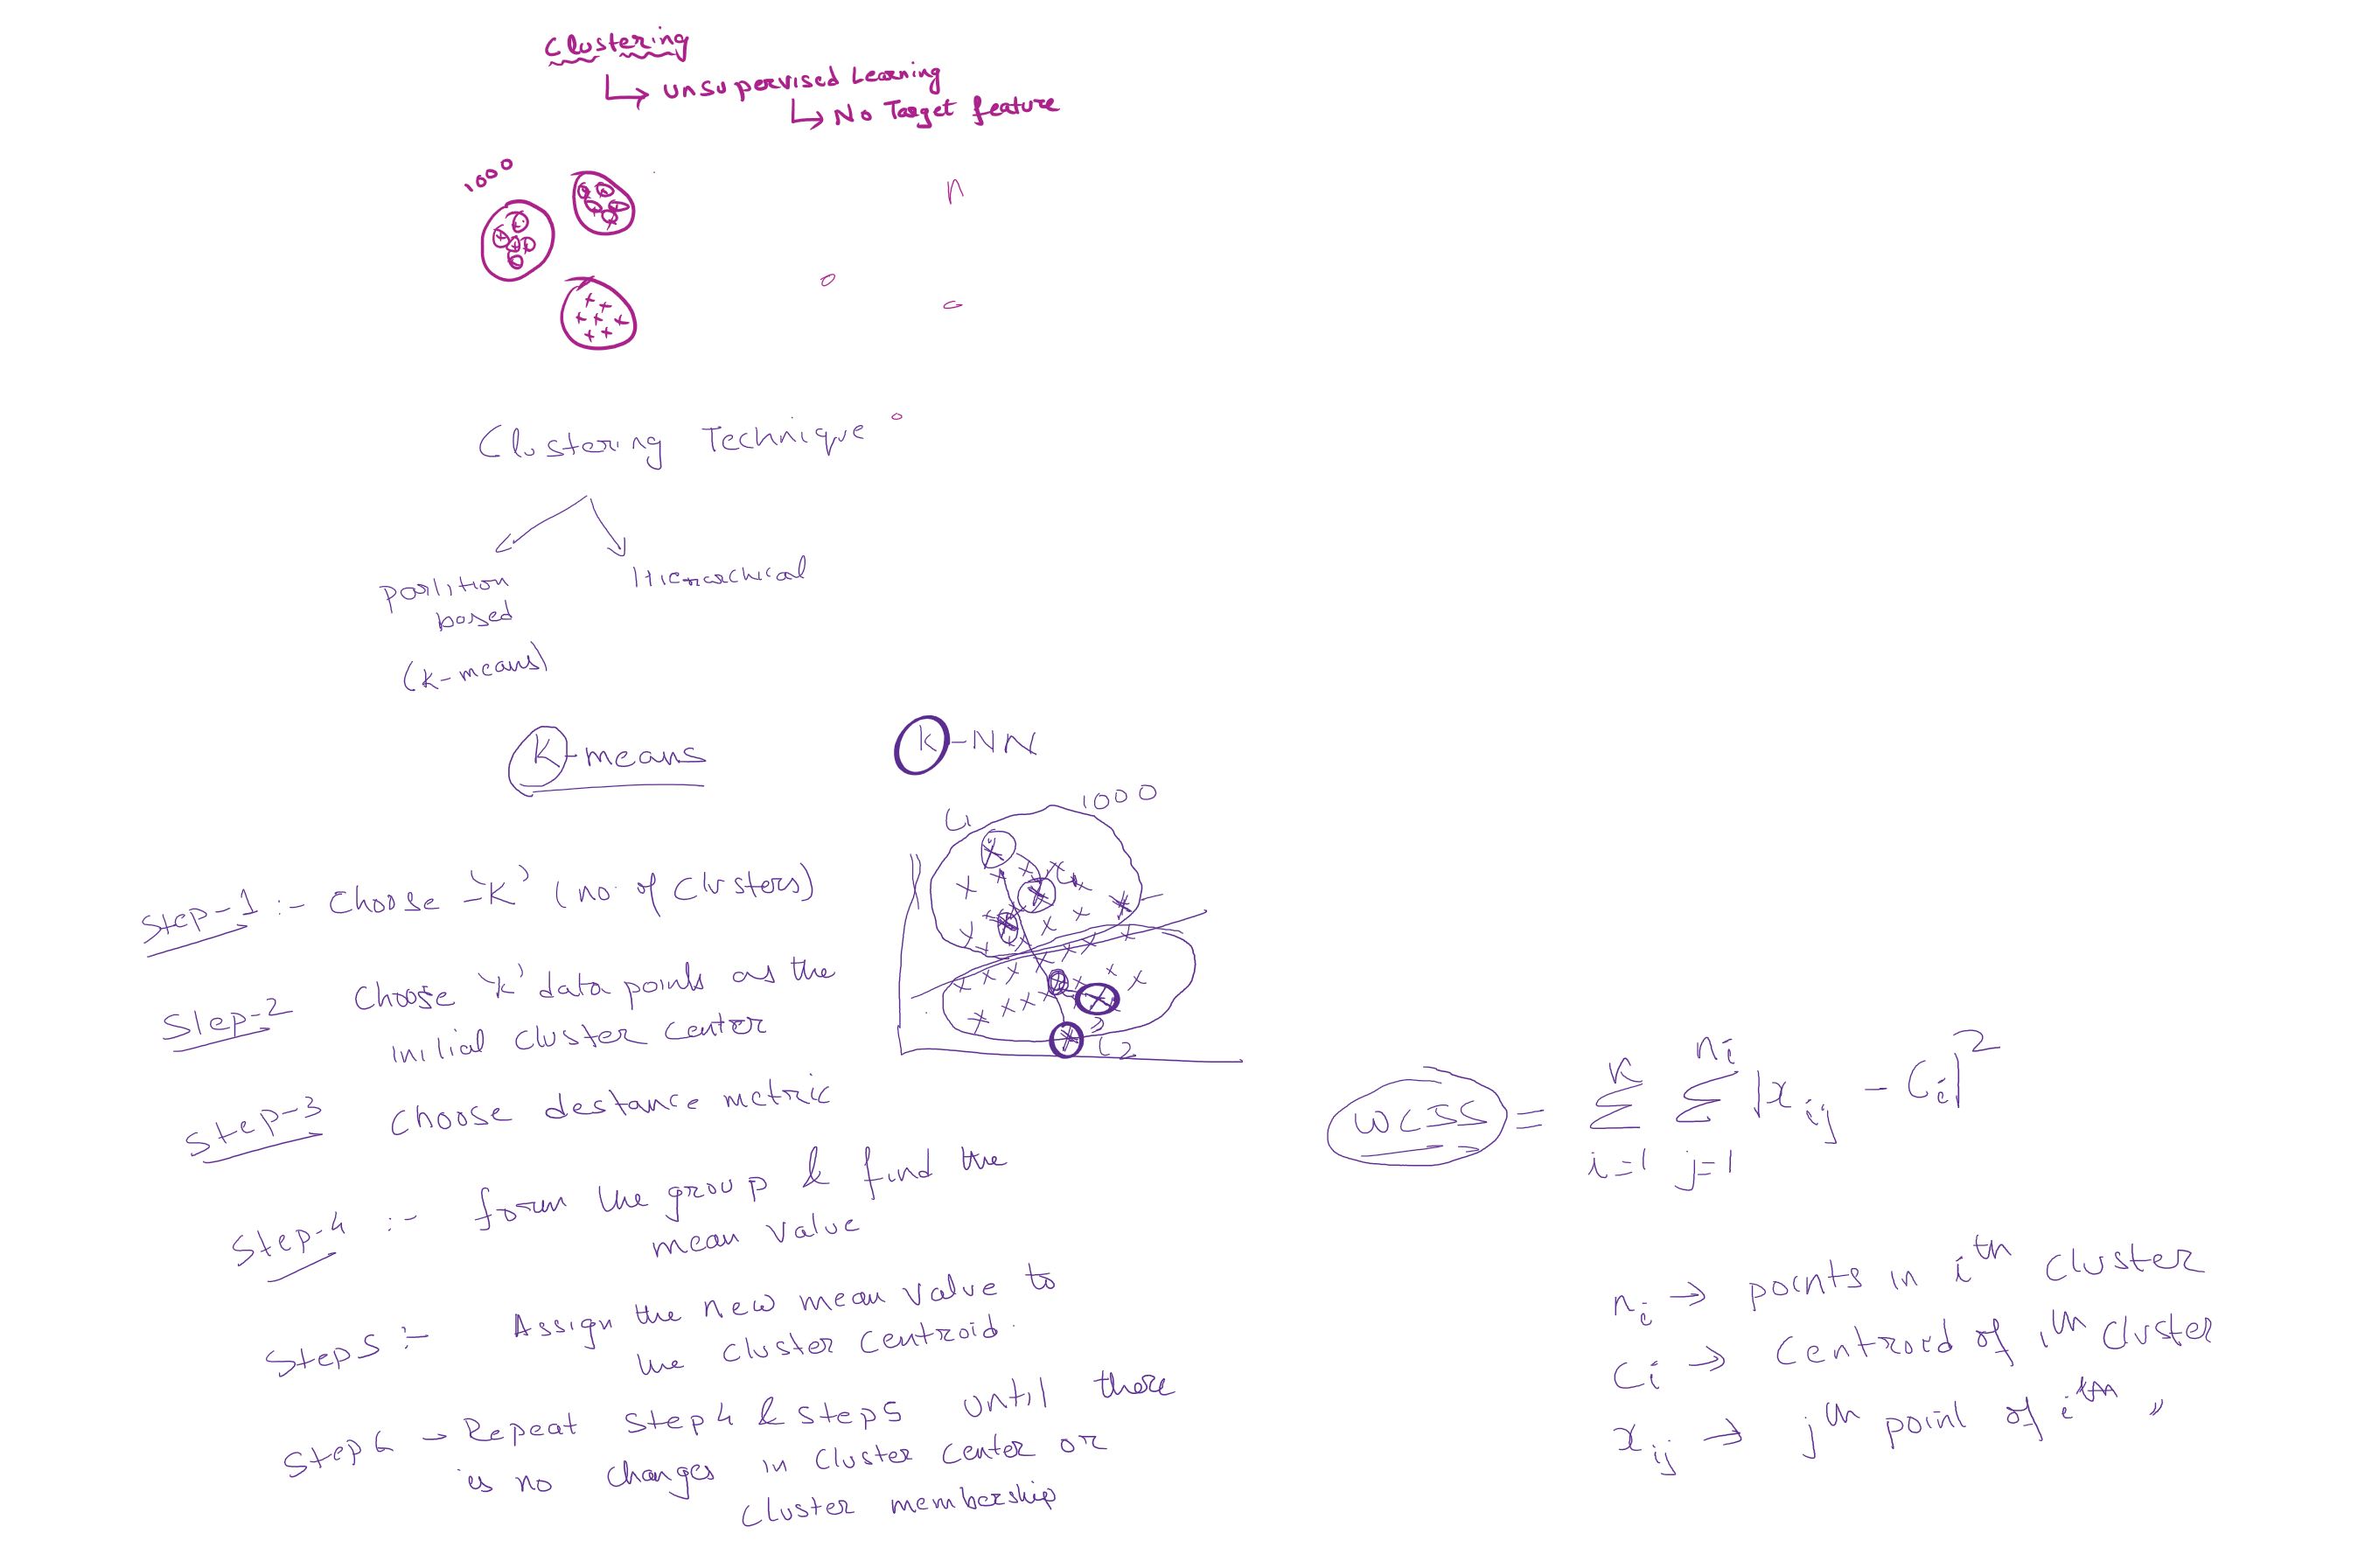 Clustering
↳ Unsupervised Learning
↳ No Target feature
1000
n
Clustering Technique
partition
based
(k-means)
Hierarchical
K-means
K-NN
1000
C1
C2
Step-1 :- Choose 'K' (no. of Clusters)
Step-2 Choose 'k' data points as the
initial cluster center
Step-3 Choose destance metric
Step-4 :- form the group & find the
mean value
Step5 :- Assign the new mean value to
the cluster centroid.
Step6 - Repeat step4 & step5 until there
is no changes in cluster center or
cluster membership
WCSS = K∑i=1 ni∑j=1 |xij - Ci|²
ni → points in ith cluster
Ci → Centroid of ith cluster
xij → jth point of ith "